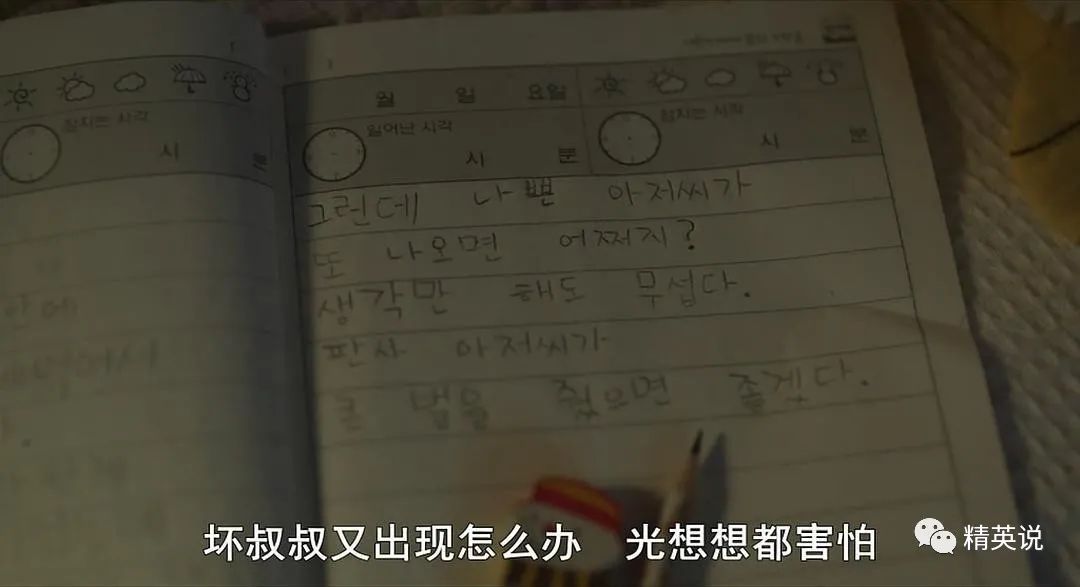 월 일 요일
잠자는 시각
일어난 시각
잠자는 시각
시 분
시 분
시 분
그런데 나쁜 아저씨가
또 나오면 어쩌지?
생각만 해도 무섭다.
판사 아저씨가
큰 벌을 줬으면 좋겠다.
坏叔叔又出现怎么办 光想想都害怕
精英说